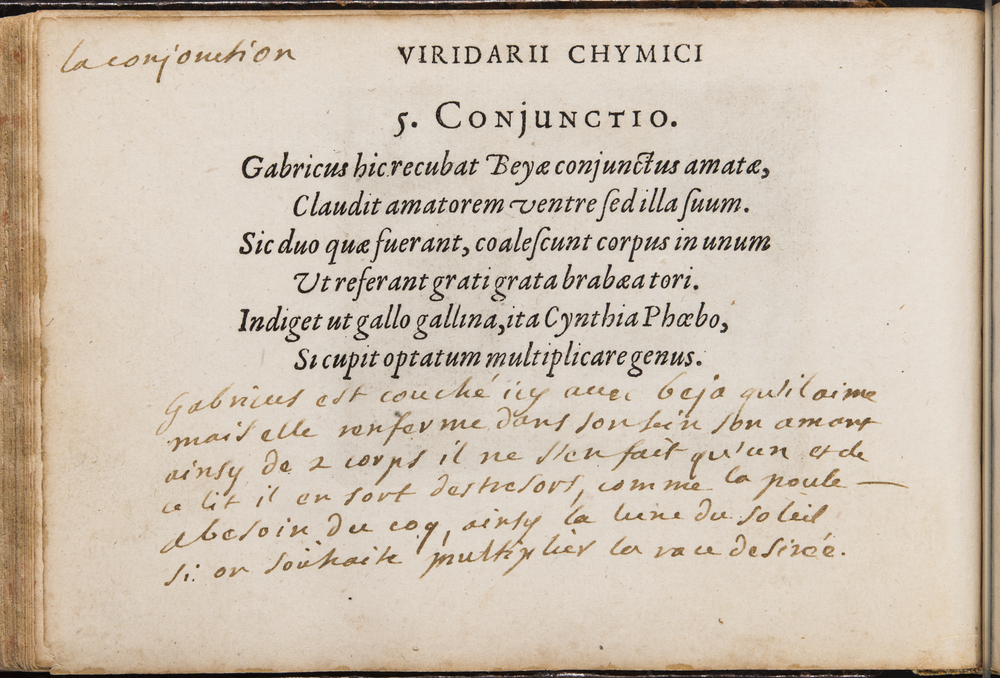 la conjonction
VIRIDARII CHYMICI
5. CONJUNCTIO.
Gabricus hic recubat Beyæ conjunctus amatæ,
Claudit amatorem ventre ſed illa ſuum.
Sic duo quæ fuerant, coaleſcunt corpus in unum
Ut referant grati grata brabæa tori.
Indiget ut gallo gallina, ita Cynthia Phœbo,
Si cupit optatum multiplicare genus.
Gabricus est couché icy avec beja qu'il aime
mais elle renferme dans son sein son amant
ainsy de 2 corps il ne s'en fait qu'un et de
ce lit il en sort des tresors, comme la poule —
a besoin du coq, ainsy la lune du soleil
si on souhaite multiplier la race desirée.